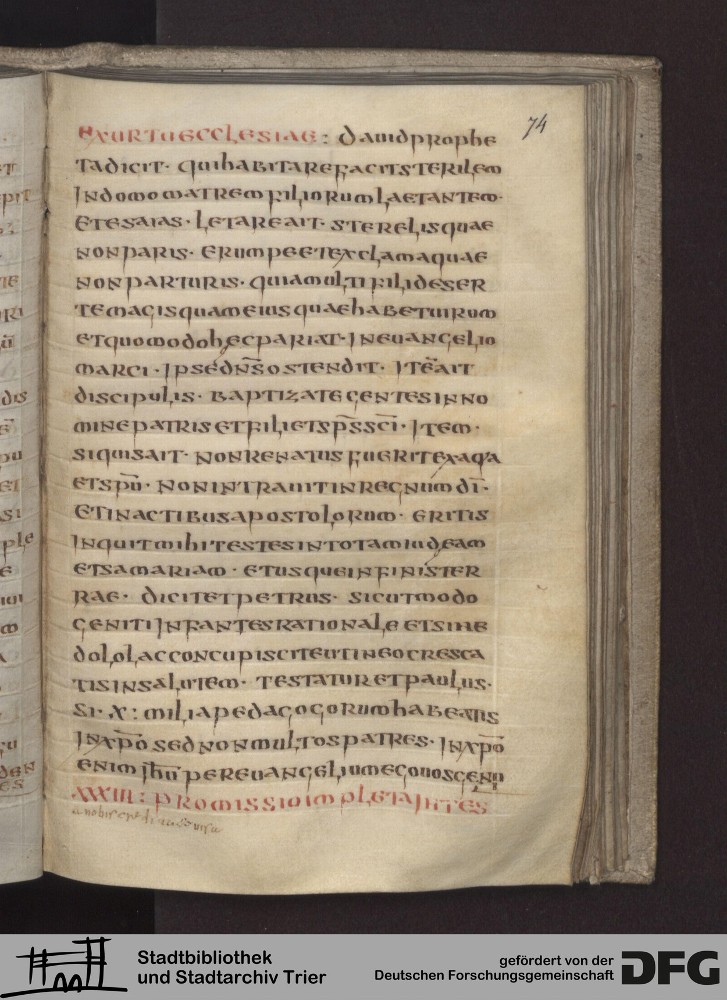 74
EXURTU ECCLESIAE : dauid prophe
TA dicit · qui habitare facit sterilem
IN domo matrem filiorum laetantem ·
ET esaias · letare ait · sterelis quae
non paris · erumpe et exclama quae
non parturis · quia multi fili deser
te magis quam eius quae habet uirum
et quomodo hec pariat · IN euangelio
marci · ipse dn̄s ostendit · Ite ait
discipulis · baptizate gentes in no
mine patris et fili et sp̄s sc̄i · Item ·
si quis ait · non renatus fuerit ex aqua
et spū · non intrauit in regnum dī ·
ET in actibus apostolorum · eritis
inquit mihi testes in tota iudeam
et samariam · et usque in finis ter
rae · dicit et petrus · sicut modo
geniti infantes rationale et sine
dolo lac concupiscite ut in eo cresca
tis in salutem · testatur et paulus ·
si · X : milia pedagogorum habeatis
in xp̄o sed non multos patres · IN xp̄o
enim ihū per euangelium ego uos genui
XXXIII : PROMISSIO IMPLETA IN TES
Stadtbibliothek
und Stadtarchiv Trier
gefördert von der
Deutschen Forschungsgemeinschaft
DFG